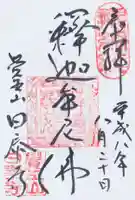 奉拝
平成八年
八月二十日
釋迦牟尼佛
覚王山日泰寺